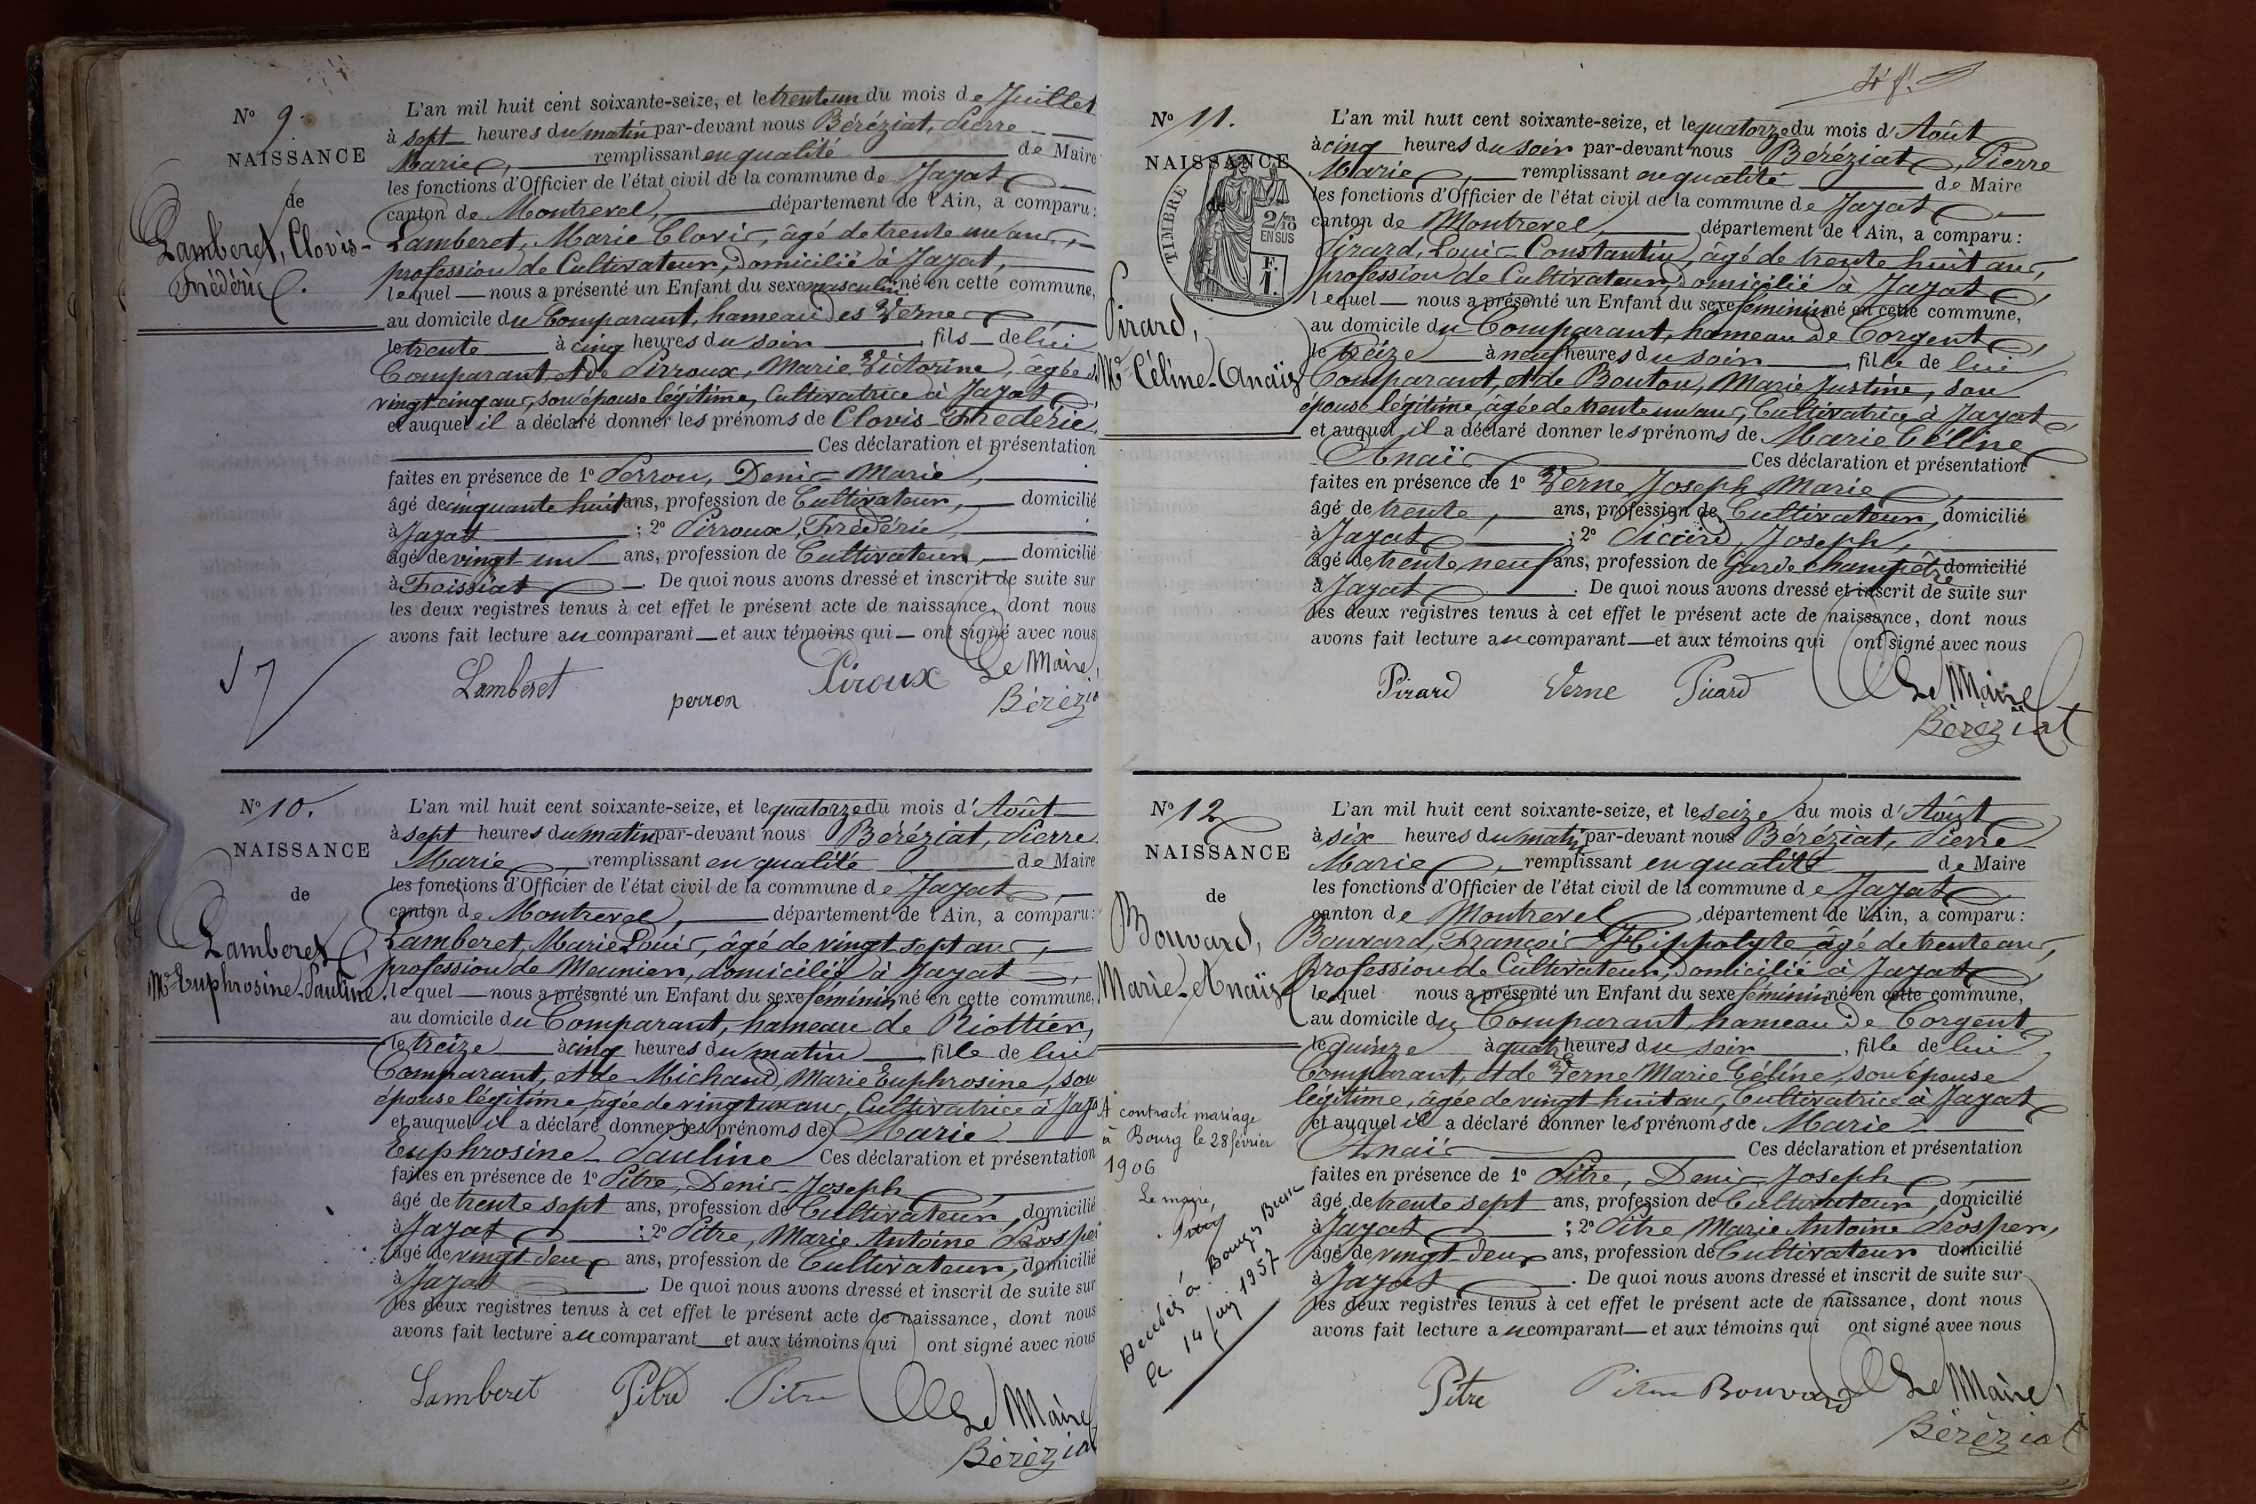 N° 9.
NAISSANCE
de
Lamberet, Clovis-
Frédéric.
L'an mil huit cent soixante-seize, et le trente un du mois de Juillet
à sept heures du matin par-devant nous Béréziat, Pierre
Marie, remplissant en qualité de Maire
les fonctions d'Officier de l'état civil de la commune de Jayat
canton de Montrevel, département de l'Ain, a comparu:
Lamberet, Marie Clovis, âgé de trente un ans,
profession de Cultivateur, domicilié à Jayat,
lequel nous a présenté un Enfant du sexe masculin né en cette commune,
au domicile du Comparant, hameau des Verne
le trente à cinq heures du soir, fils de lui
Comparant, et de Pirroux, Marie Victorine, âgée de
vingt cinq ans, son épouse légitime, Cultivatrice à Jayat
et auquel il a déclaré donner les prénoms de Clovis-Frédéric
Ces déclaration et présentation
faites en présence de 1° Perron, Denis-Marie,
âgé de cinquante huit ans, profession de Cultivateur, domicilié
à Jayat; 2° Pirroux, Frédéric,
âgé de vingt un ans, profession de Cultivateur, domicilié
à Foissiat. De quoi nous avons dressé et inscrit de suite sur
les deux registres tenus à cet effet le présent acte de naissance, dont nous
avons fait lecture au comparant et aux témoins qui ont signé avec nous
Lamberet perron Piroux Le Maire,
Bérézia
N° 10.
NAISSANCE
de
Lamberet,
Mie Euphrosine-Pauline.
L'an mil huit cent soixante-seize, et le quatorze du mois d'Août
à sept heures du matin par-devant nous Beréziat, Pierre
Marie, remplissant en qualité de Maire
les fonctions d'Officier de l'état civil de la commune de Jayat,
canton de Montrevel, département de l'Ain, a comparu:
Lamberet, Marie Louis, âgé de vingt sept ans,
profession de Meunier, domicilié à Jayat,
lequel nous a présenté un Enfant du sexe féminin né en cette commune,
au domicile du Comparant, hameau de Riottier,
le treize à cinq heures du matin, fille de lui
Comparant, et de Michaud, Marie Euphrosine, son
épouse légitime, agée de vingt un ans, Cultivatrice à Jaya
et auquel il a déclaré donner les prénoms de Marie
Euphrosine-Pauline Ces déclaration et présentation
faites en présence de 1° Pitre, Denis-Joseph
âgé de trente sept ans, profession de Cultivateur, domicilié
à Jayat; 2° Pitre, Marie Antoine Prosper
âgé de vingt-deux ans, profession de Cultivateur, domicilié
à Jayat. De quoi nous avons dressé et inscrit de suite sur
les deux registres tenus à cet effet le présent acte de naissance, dont nous
avons fait lecture au comparant et aux témoins qui ont signé avec nous
Lamberet Pitre Pitre Le Maire
Bérézia
N° 11.
NAISSANCE
de
TIMBRE
2/10
EN SUS
F.
1.
Pirard,
Mie Céline-Anaïs
L'an mil huit cent soixante-seize, et le quatorze du mois d'Août
à cinq heures du soir par-devant nous Béréziat, Pierre
Marie, remplissant en qualité de Maire
les fonctions d'Officier de l'état civil de la commune de Jayat
canton de Montrevel, département de l'Ain, a comparu:
Pirard, Louis-Constantin, âgé de trente huit ans,
profession de Cultivateur, domicilié à Jayat,
lequel nous a présenté un Enfant du sexe féminin né en cette commune,
au domicile du Comparant, hameau de Corgent,
le treize à neuf heures du soir, fille de lui
Comparant, et de Bouton, Marie Justine, son
épouse légitime, âgée de trente un ans, Cultivatrice à Jayat,
et auquel il a déclaré donner les prénoms de Marie Céline
Anaïs Ces déclaration et présentation
faites en présence de 1° Verne Joseph Marie,
âgé de trente, ans, profession de Cultivateur, domicilié
à Jayat; 2° Piccard, Joseph,
âgé de trente neuf ans, profession de Garde champêtre domicilié
à Jayat. De quoi nous avons dressé et inscrit de suite sur
les deux registres tenus à cet effet le présent acte de naissance, dont nous
avons fait lecture au comparant et aux témoins qui ont signé avec nous
Pirard Verne Picard Le Maire
Béréziat
N° 12
NAISSANCE
de
Bouvard,
Marie-Anaïs
A contracté mariage
à Bourg le 28 février
1906
Le maire,
Décédée à Bourg
le 14 1957
L'an mil huit cent soixante-seize, et le seize du mois d'Août
à six heures du matin par-devant nous Béréziat, Pierre
Marie, remplissant en qualité de Maire
les fonctions d'Officier de l'état civil de la commune de Jayat
canton de Montrevel, département de l'Ain, a comparu:
Bouvard, François-Hippolyte, âgé de trente ans,
profession de Cultivateur, domicilié à Jayat,
lequel nous a présenté un Enfant du sexe féminin né en cette commune,
au domicile du Comparant, hameau de Corgent,
le quinze à quatre heures du soir, fille de lui
Comparant, et de Verne Marie Céline, son épouse
légitime, âgée de vingt huit ans, Cultivatrice à Jayat
et auquel il a déclaré donner les prénoms de Marie
Anaïs Ces déclaration et présentation
faites en présence de 1° Pitre, Denis-Joseph,
âgé de trente sept ans, profession de Cultivateur, domicilié
à Jayat; 2° Pitre Marie Antoine Prosper,
âgé de vingt-deux ans, profession de Cultivateur domicilié
à Jayat. De quoi nous avons dressé et inscrit de suite sur
les deux registres tenus à cet effet le présent acte de naissance, dont nous
avons fait lecture au comparant et aux témoins qui ont signé avec nous
Pitre Pitre Bouvard Le Maire,
Béréziat